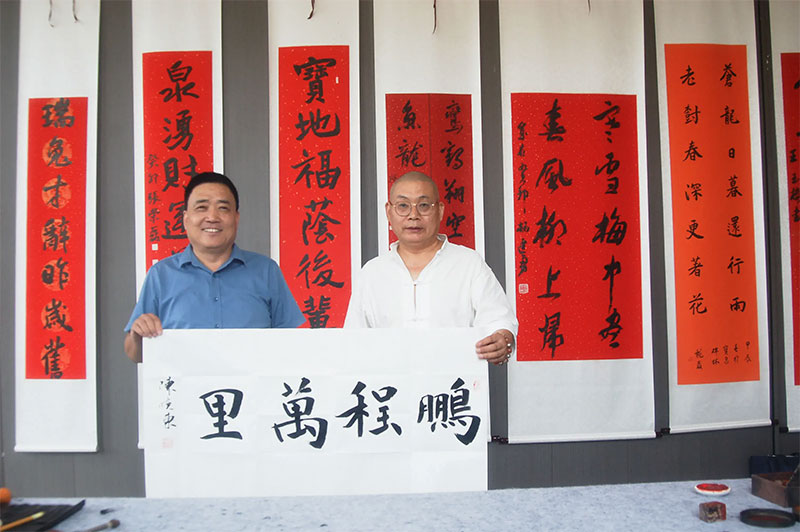 瑞兔才辭昨歲舊
泉湧財運
寶地福蔭後輩
鸞鶴翔空
魚龍
寒雪梅中盡
春風柳上歸
蒼龍日暮還行雨
老樹春深更著花
甲辰
鵬程萬里